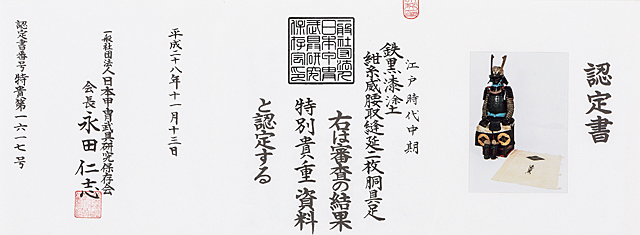 認定書
江戸時代中期
鉄黒漆塗
紺糸威腰取縫延二枚胴具足
右は審査の結果
特別貴重資料
と認定する
平成二十八年十一月十三日
一般社団法人日本甲冑武具研究保存会
会長 永田仁志
認定書番号 特貴第一六一七号